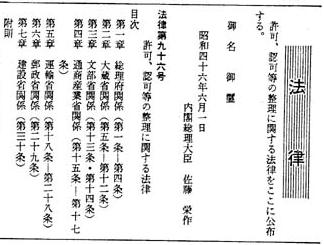 法律
許可、認可等の整理に関する法律をここに公布
する。
御名 御璽
昭和四十六年六月一日
内閣総理大臣 佐藤 栄作
法律第九十六号
許可、認可等の整理に関する法律
目次
第一章 総理府関係（第一条―第四条）
第二章 大蔵省関係（第五条―第十二条）
第三章 文部省関係（第十三条・第十四条）
第四章 通商産業省関係（第十五条―第十七
条）
第五章 運輸省関係（第十八条―第二十八条）
第六章 郵政省関係（第二十九条）
第七章 建設省関係（第三十条）
附則